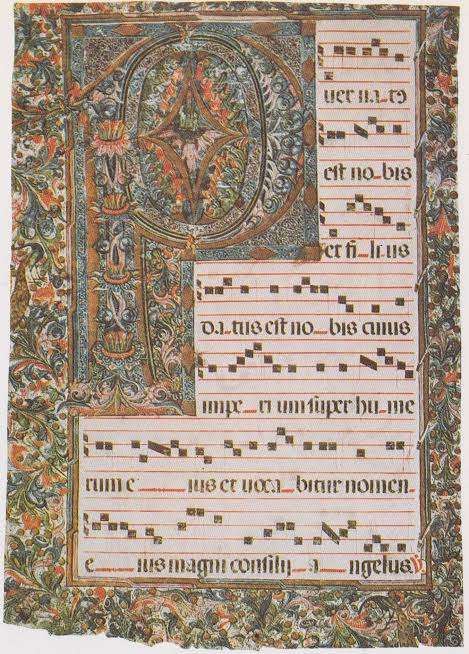 P
uer na_to
est no_bis
et fi_lius
da_tus est no_bis cuius
impe_ri um super hu_me
rum e_ius et voca_bitur nomen_
e_ius magni consilij_a_ngelus